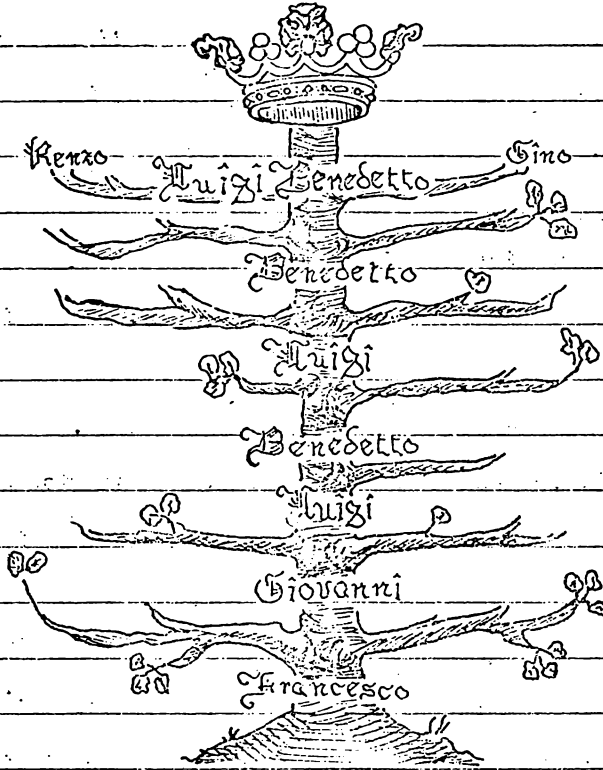 Renzo Luigi Benedetto Gino
Benedetto
Luigi
Benedetto
Luigi
Giovanni
Francesco